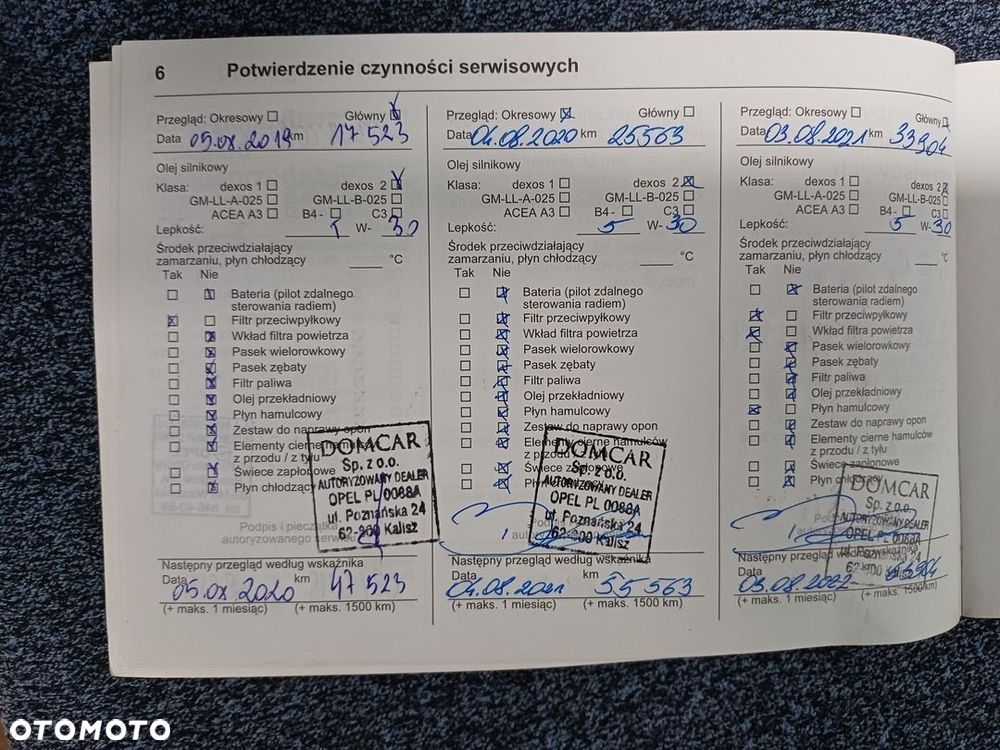 6 Potwierdzenie czynności serwisowych
Przegląd: Okresowy Główny
Data 05.08.2019 km 17 523
Olej silnikowy
Klasa: dexos 1 dexos 2
GM-LL-A-025 GM-LL-B-025
ACEA A3 B4 - C3
Lepkość: W- 30
Środek przeciwdziałający
zamarzaniu, płyn chłodzący °C
Tak Nie
Bateria (pilot zdalnego
sterowania radiem)
Filtr przeciwpyłkowy
Wkład filtra powietrza
Pasek wielorowkowy
Pasek zębaty
Filtr paliwa
Olej przekładniowy
Płyn hamulcowy
Zestaw do naprawy opon
Elementy cierne hamulców
z przodu / z tyłu
Świece zapłonowe
Płyn chłodzący
DOMCAR
Sp. z o.o.
AUTORYZOWANY DEALER
OPEL PL 0088A
ul. Poznańska 24
62-800 Kalisz
Podpis i pieczątka
autoryzowanego serwisu
Następny przegląd według wskaźnika
Data 05.08.2020 km 47 523
(+ maks. 1 miesiąc) (+ maks. 1500 km)
Przegląd: Okresowy Główny
Data 04.08.2020 km 25563
Olej silnikowy
Klasa: dexos 1 dexos 2
GM-LL-A-025 GM-LL-B-025
ACEA A3 B4 - C3
Lepkość: 5 W- 30
Środek przeciwdziałający
zamarzaniu, płyn chłodzący °C
Tak Nie
Bateria (pilot zdalnego
sterowania radiem)
Filtr przeciwpyłkowy
Wkład filtra powietrza
Pasek wielorowkowy
Pasek zębaty
Filtr paliwa
Olej przekładniowy
Płyn hamulcowy
Zestaw do naprawy opon
Elementy cierne hamulców
z przodu
Świece zapłonowe
DOMCAR
Sp. z o.o.
AUTORYZOWANY DEALER
OPEL PL 0088A
ul. Poznańska 24
62-800 Kalisz
Następny przegląd według wskaźnika
Data 04.08.2021 km 55 563
(+ maks. 1 miesiąc) (+ maks. 1500 km)
Przegląd: Okresowy Główny
Data 03.08.2021 km 33904
Olej silnikowy
Klasa: dexos 1 dexos 2
GM-LL-A-025 GM-LL-B-025
ACEA A3 B4 - C3
Lepkość: 5 W- 30
Środek przeciwdziałający
zamarzaniu, płyn chłodzący °C
Tak Nie
Bateria (pilot zdalnego
sterowania radiem)
Filtr przeciwpyłkowy
Wkład filtra powietrza
Pasek wielorowkowy
Pasek zębaty
Filtr paliwa
Olej przekładniowy
Płyn hamulcowy
Zestaw do naprawy opon
Elementy cierne hamulców
z przodu / z tyłu
Świece zapłonowe
Płyn chłodzący
DOMCAR
Sp. z o.o.
AUTORYZOWANY DEALER
OPEL PL 0088A
ul. Poznańska
62-800 Kalisz
Następny przegląd według wskaźnika
Data 03.08.2022 km
(+ maks. 1 miesiąc) (+ maks. 1500 km)
OTOMOTO